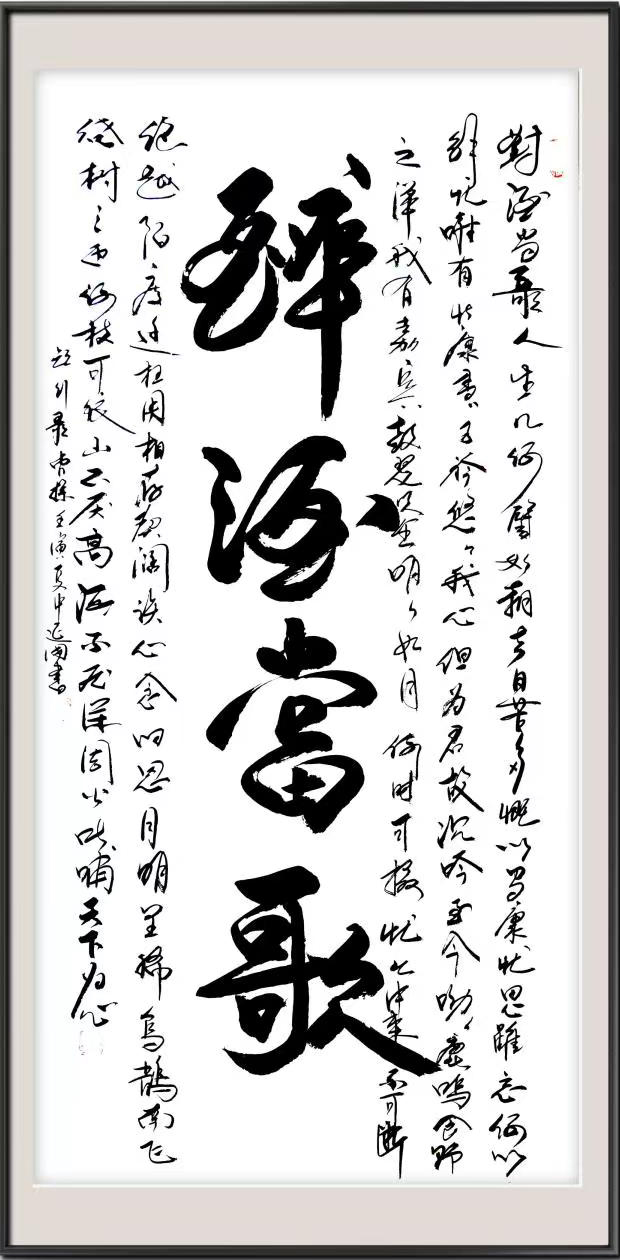 對酒当歌人生几何譬如朝去日苦多慨以当康忧思雖忘何以
解忧唯有杜康青々子衿悠々我心但为君故沉吟至今呦々鹿鸣食野
之萍我有嘉宾鼓瑟吹笙明々如月何时可掇忧从中来不可断
醉酒當歌
绝越陌度阡枉用相存契阔谈心念旧恩月明星稀乌鹊南飞
绕树三匝何枝可依山不厌高海不厌深周公吐哺天下归心
曹操壬寅夏中書